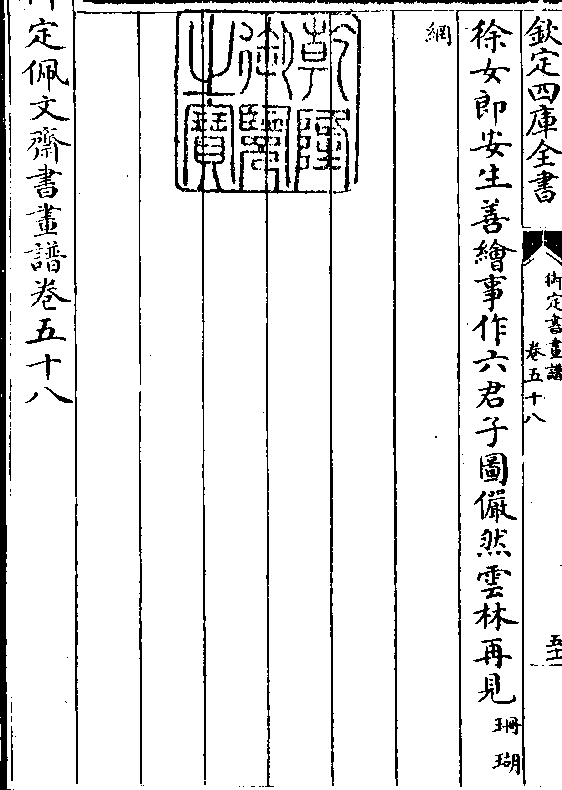 欽定四庫全書
御定書畫譜
卷五十八
五十一
徐女郎安生善繪事作六君子圖儼然雲林再見珊瑚
網
乾隆御覽之寶
御定佩文齋書畫譜卷五十八